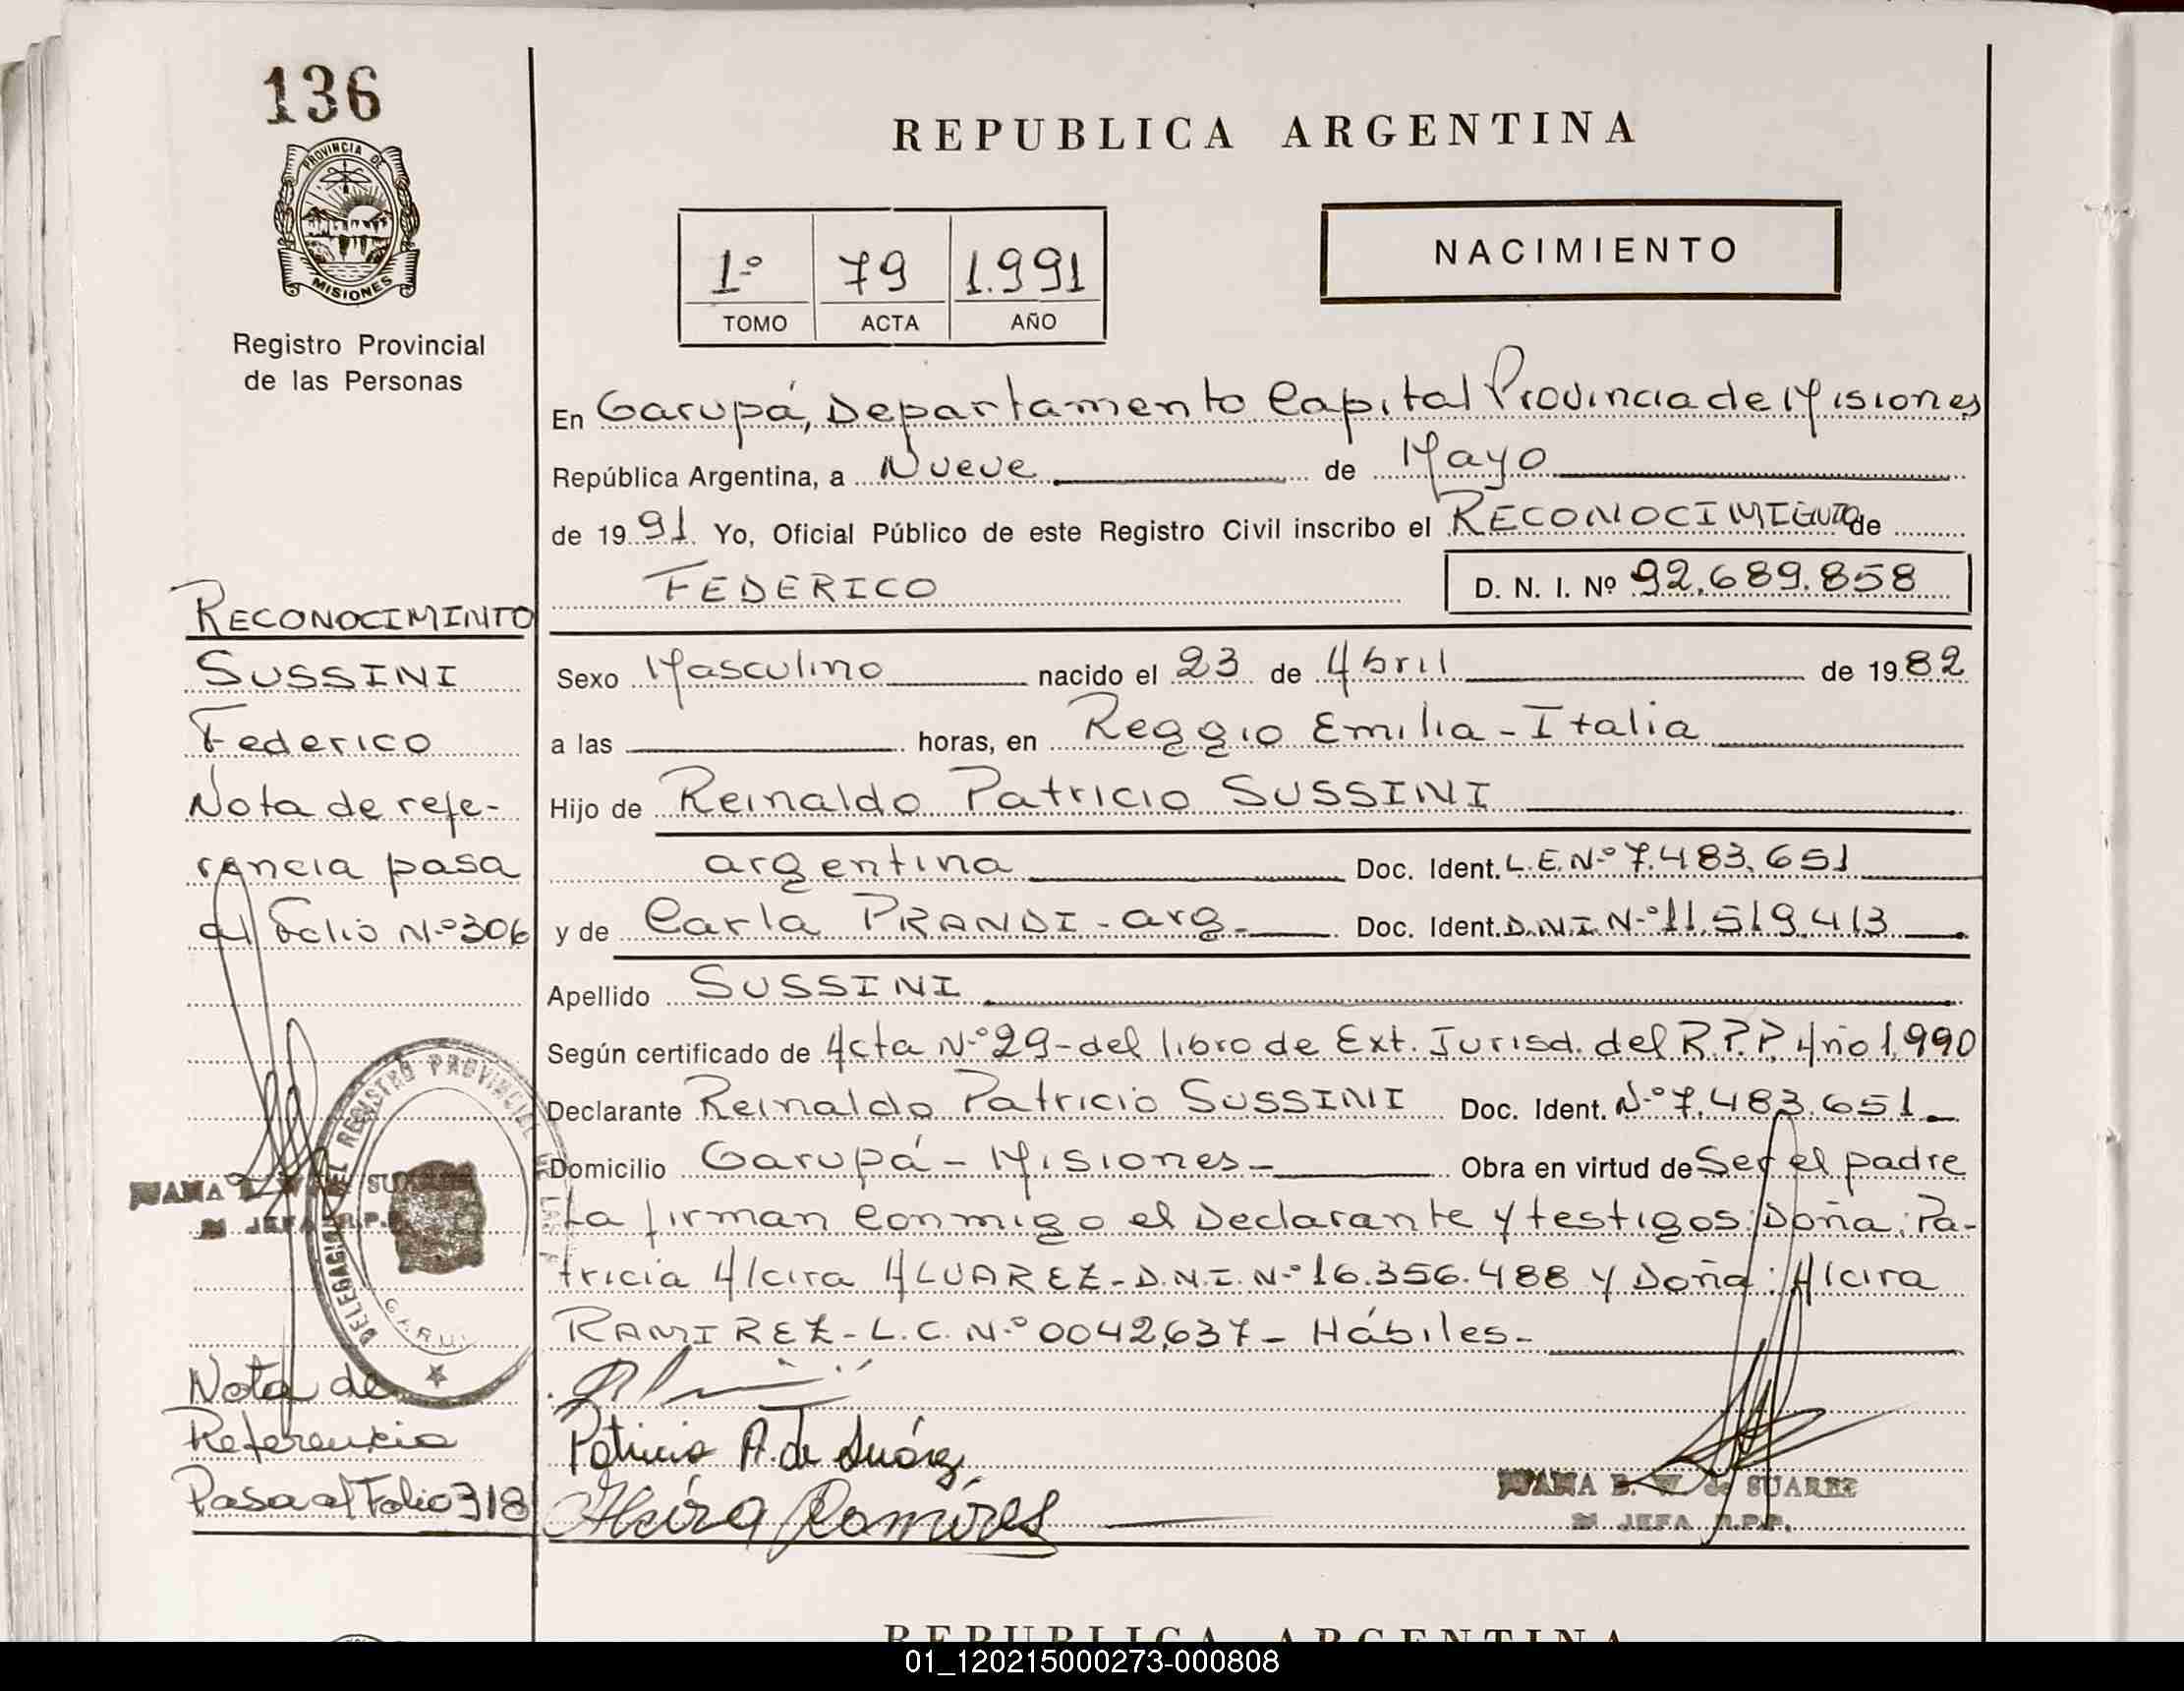 136
PROVINCIA DE
MISIONES
Registro Provincial
de las Personas
REPUBLICA ARGENTINA
1º 79 1.991
TOMO ACTA AÑO
NACIMIENTO
En Garupá, Departamento Capital Provincia de Misiones
República Argentina, a Nueve de Mayo
de 1991 Yo, Oficial Público de este Registro Civil inscribo el RECONOCIMIENTO de
FEDERICO D. N. I. Nº 92.689.858
Sexo Masculino nacido el 23 de Abril de 1982
a las horas, en Reggio Emilia - Italia
Hijo de Reinaldo Patricio SUSSINI
argentina Doc. Ident. L.E. Nº 7.483.651
y de Carla PRANDI - arg. Doc. Ident. D.N.I. Nº 11.519.413
Apellido SUSSINI
Según certificado de Acta Nº 29 - del libro de Ext. Jurisd. del R.P.P. Año 1.990
Declarante Reinaldo Patricio SUSSINI Doc. Ident. Nº 7.483.651
Domicilio Garupá - Misiones - Obra en virtud de Ser el padre
La firman conmigo el Declarante y testigos: Doña: Pa-
tricia Alcira ALVAREZ - D.N.I. Nº 16.356.488 y Doña: Alcira
RAMIREZ - L.C. Nº 0042.637 - Hábiles -
Patricia A. de Suárez
Alcira Ramírez
JUANA B. W de SUAREZ
JEFA R.P.P.
RECONOCIMINTO
SUSSINI
Federico
Nota de refe-
rencia pasa
al Folio Nº 306
DELEGACION DEL REGISTRO PROVINCIAL DE LAS
GARU
JUANA
JEFA R.P.
Nota de
Referencia
Pasa al Folio 318
REPUBLICA ARGENTINA
01_120215000273-000808